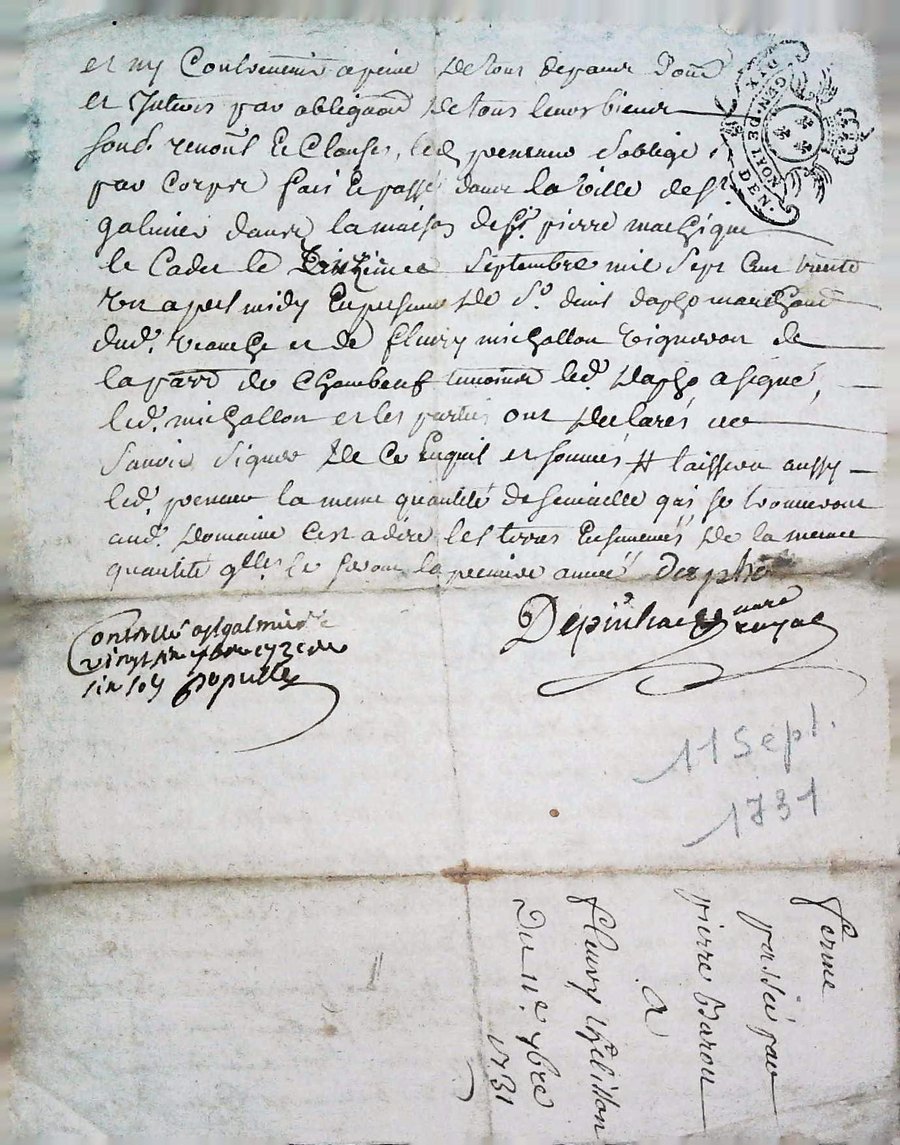 et
et Interets par obligaon de tous leurs biens
sous renont et Clauses, led preneur s'oblige
par Corps fait et passé dans la ville de St.
galmier dans la maison de Sr. pierre
le Cadet le Septembre mil sept Cent trente
un apres midy En presence de Sr. denis dapho marchand
dud. et de fleury michallon vigneron de
la parr. de Chambeuf temoins led. dapho a signé,
led. michallon et les parties ont declarés ne
savoir signer de Ce Enquis et sommés # laissera aussy
led. preneur la meme quantité de semaille qui se trouveront
aud. Domaine C'est a dire les terres Ensemencés de la meme
quantité qlles le seront la premiere année dapho
Depinhac nore
royal
Controllé a St galmier
vingt six 7bre 1731
six sols populle
GEN. DE LYON
DIX DEN.
11 Sept.
1731
ferme
passée par
pierre Baron
A
fleury
Du 11e 7bre
1731